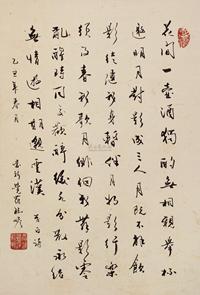 花間一壺酒獨酌無相親舉杯
邀明月對影成三人月既不解飲
影徒隨我身暫伴月將影行樂
須及春我歌月徘徊我舞影零
亂醒時同交歡醉後各分散永結
無情遊相期邈雲漢 李白詩
乙丑年春月